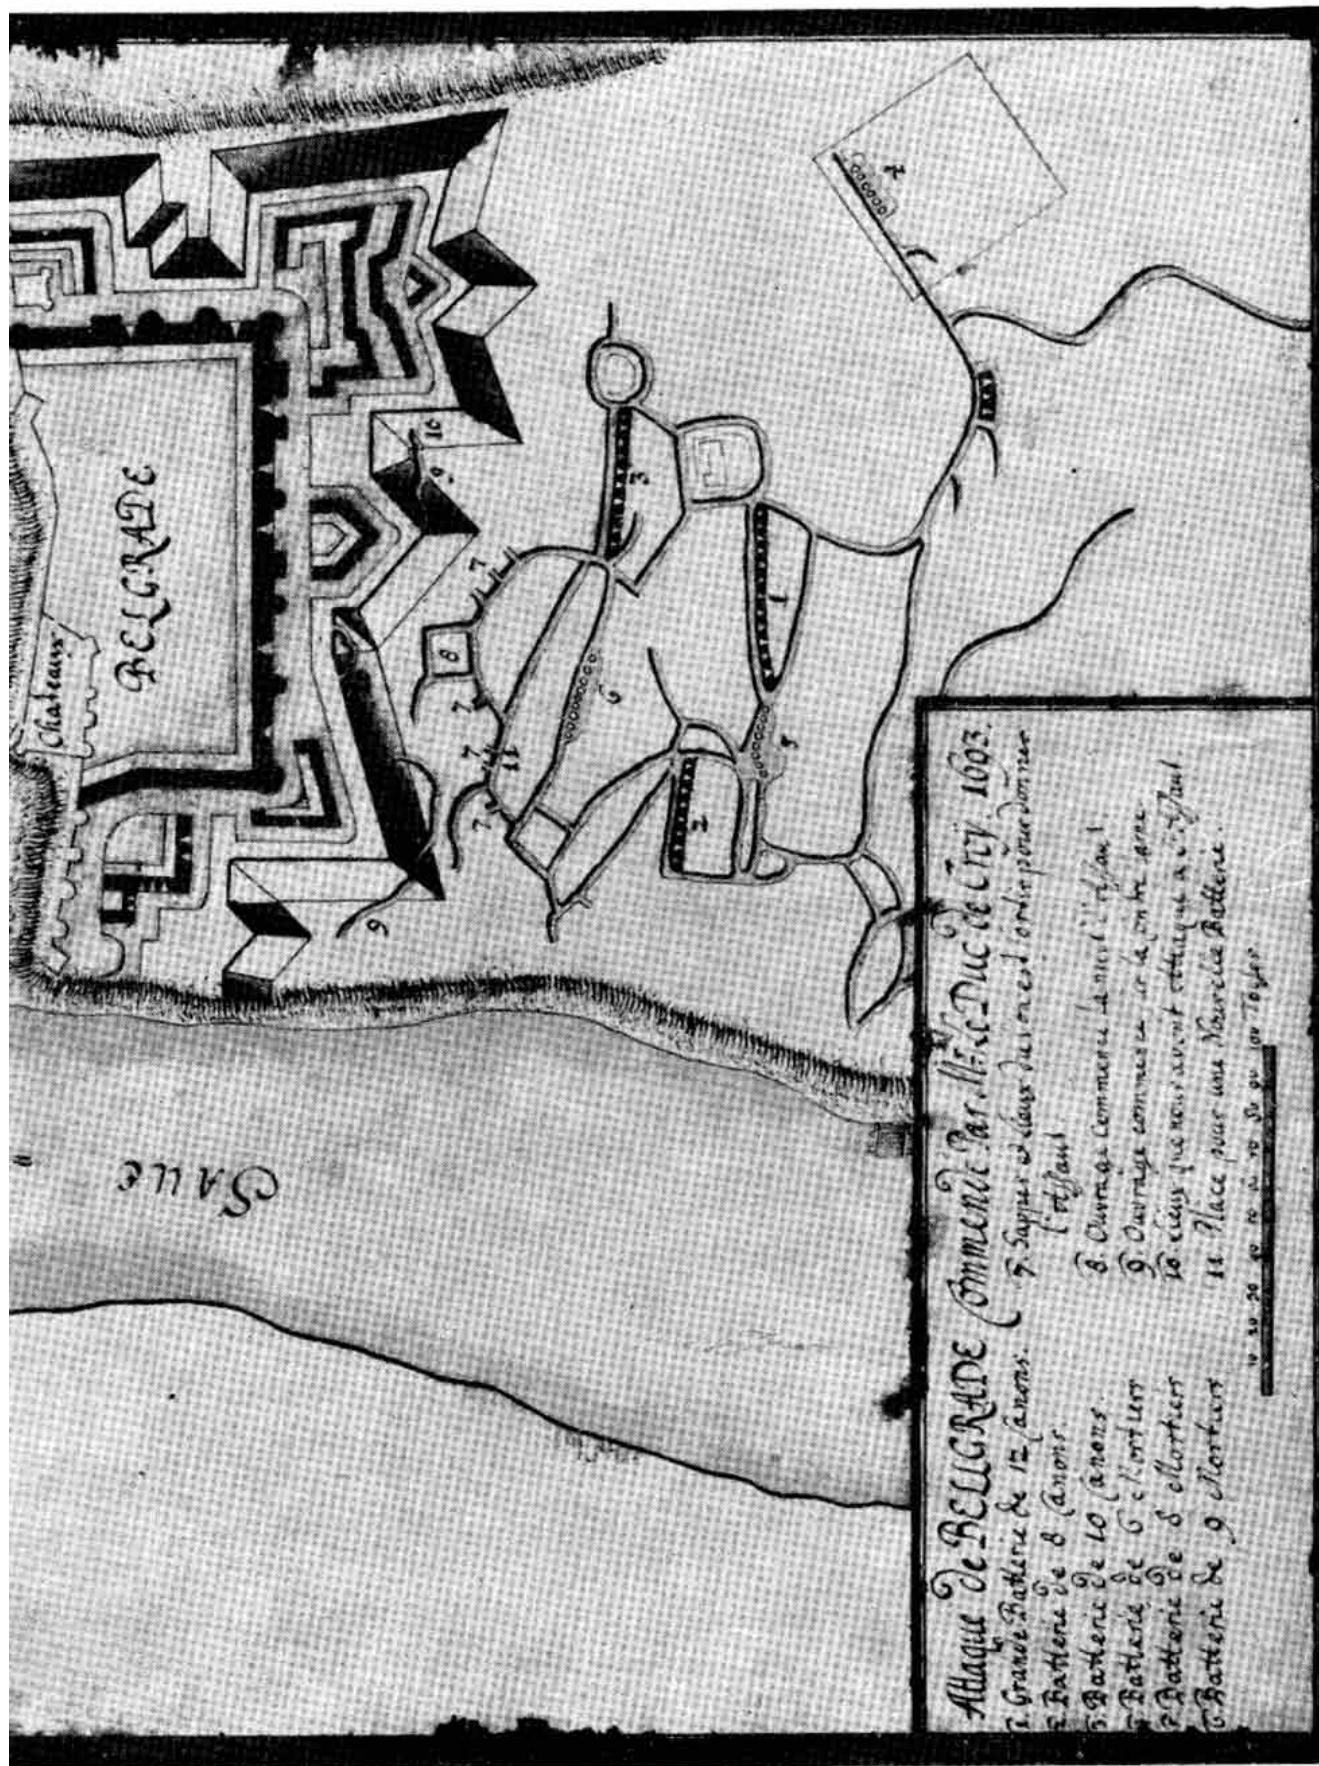 BELGRADE
Chateaux
SAUE
Attaque de BELLGRADE Commendé Par Mr. le Duc de Croy. 1693.
1. Grande Batterie de 12 Canons.
2. Batterie de 8 Canons.
3. Batterie de 10 Canons.
4. Batterie de 6 Mortiers
5. Batterie de 8 Mortiers
6. Batterie de 9 Mortiers
7. Sappes et lieux d'ou on est sortis pour donner
l'assaut
8. Ouvrage Commencé la nuit
9. Ouvrage commencé
10. Lieux que nous avons
11. Place pour une Nouvelle Batterie.
10 20 30 40 50 60 70 80 90 100 Toyses
1
2
3
4
5
6
7
7
7
7
8
9
9
10
11